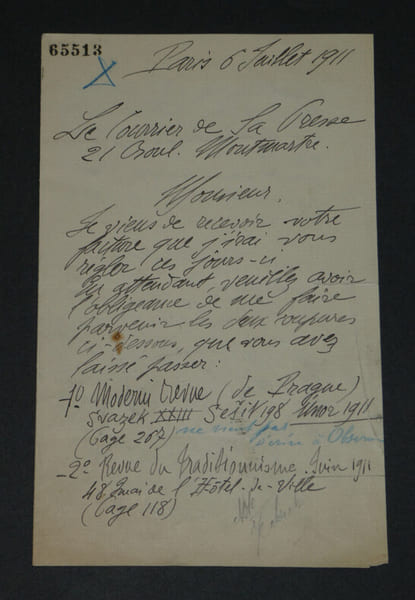 65513
Paris 6 Juillet 1911
Le Courrier de la Presse
21 Boul. Montmartre.
Monsieur.
Je viens de recevoir votre
facture que j'irai vous
régler ces jours-ci
En attendant, veuillez avoir
l'obligeance de me faire
parvenir les deux coupures
ci-dessous, que vous avez
laissé passer:
-1º Moderni Revue (de Prague)
Svazek XXIII Sesit 198 Unor 1911
(Page 267) ne veut pas
écrire à
-2º Revue du Traditionnisme. Juin 1911
48, Quai de l'Hôtel-de-Ville
(Page 118)